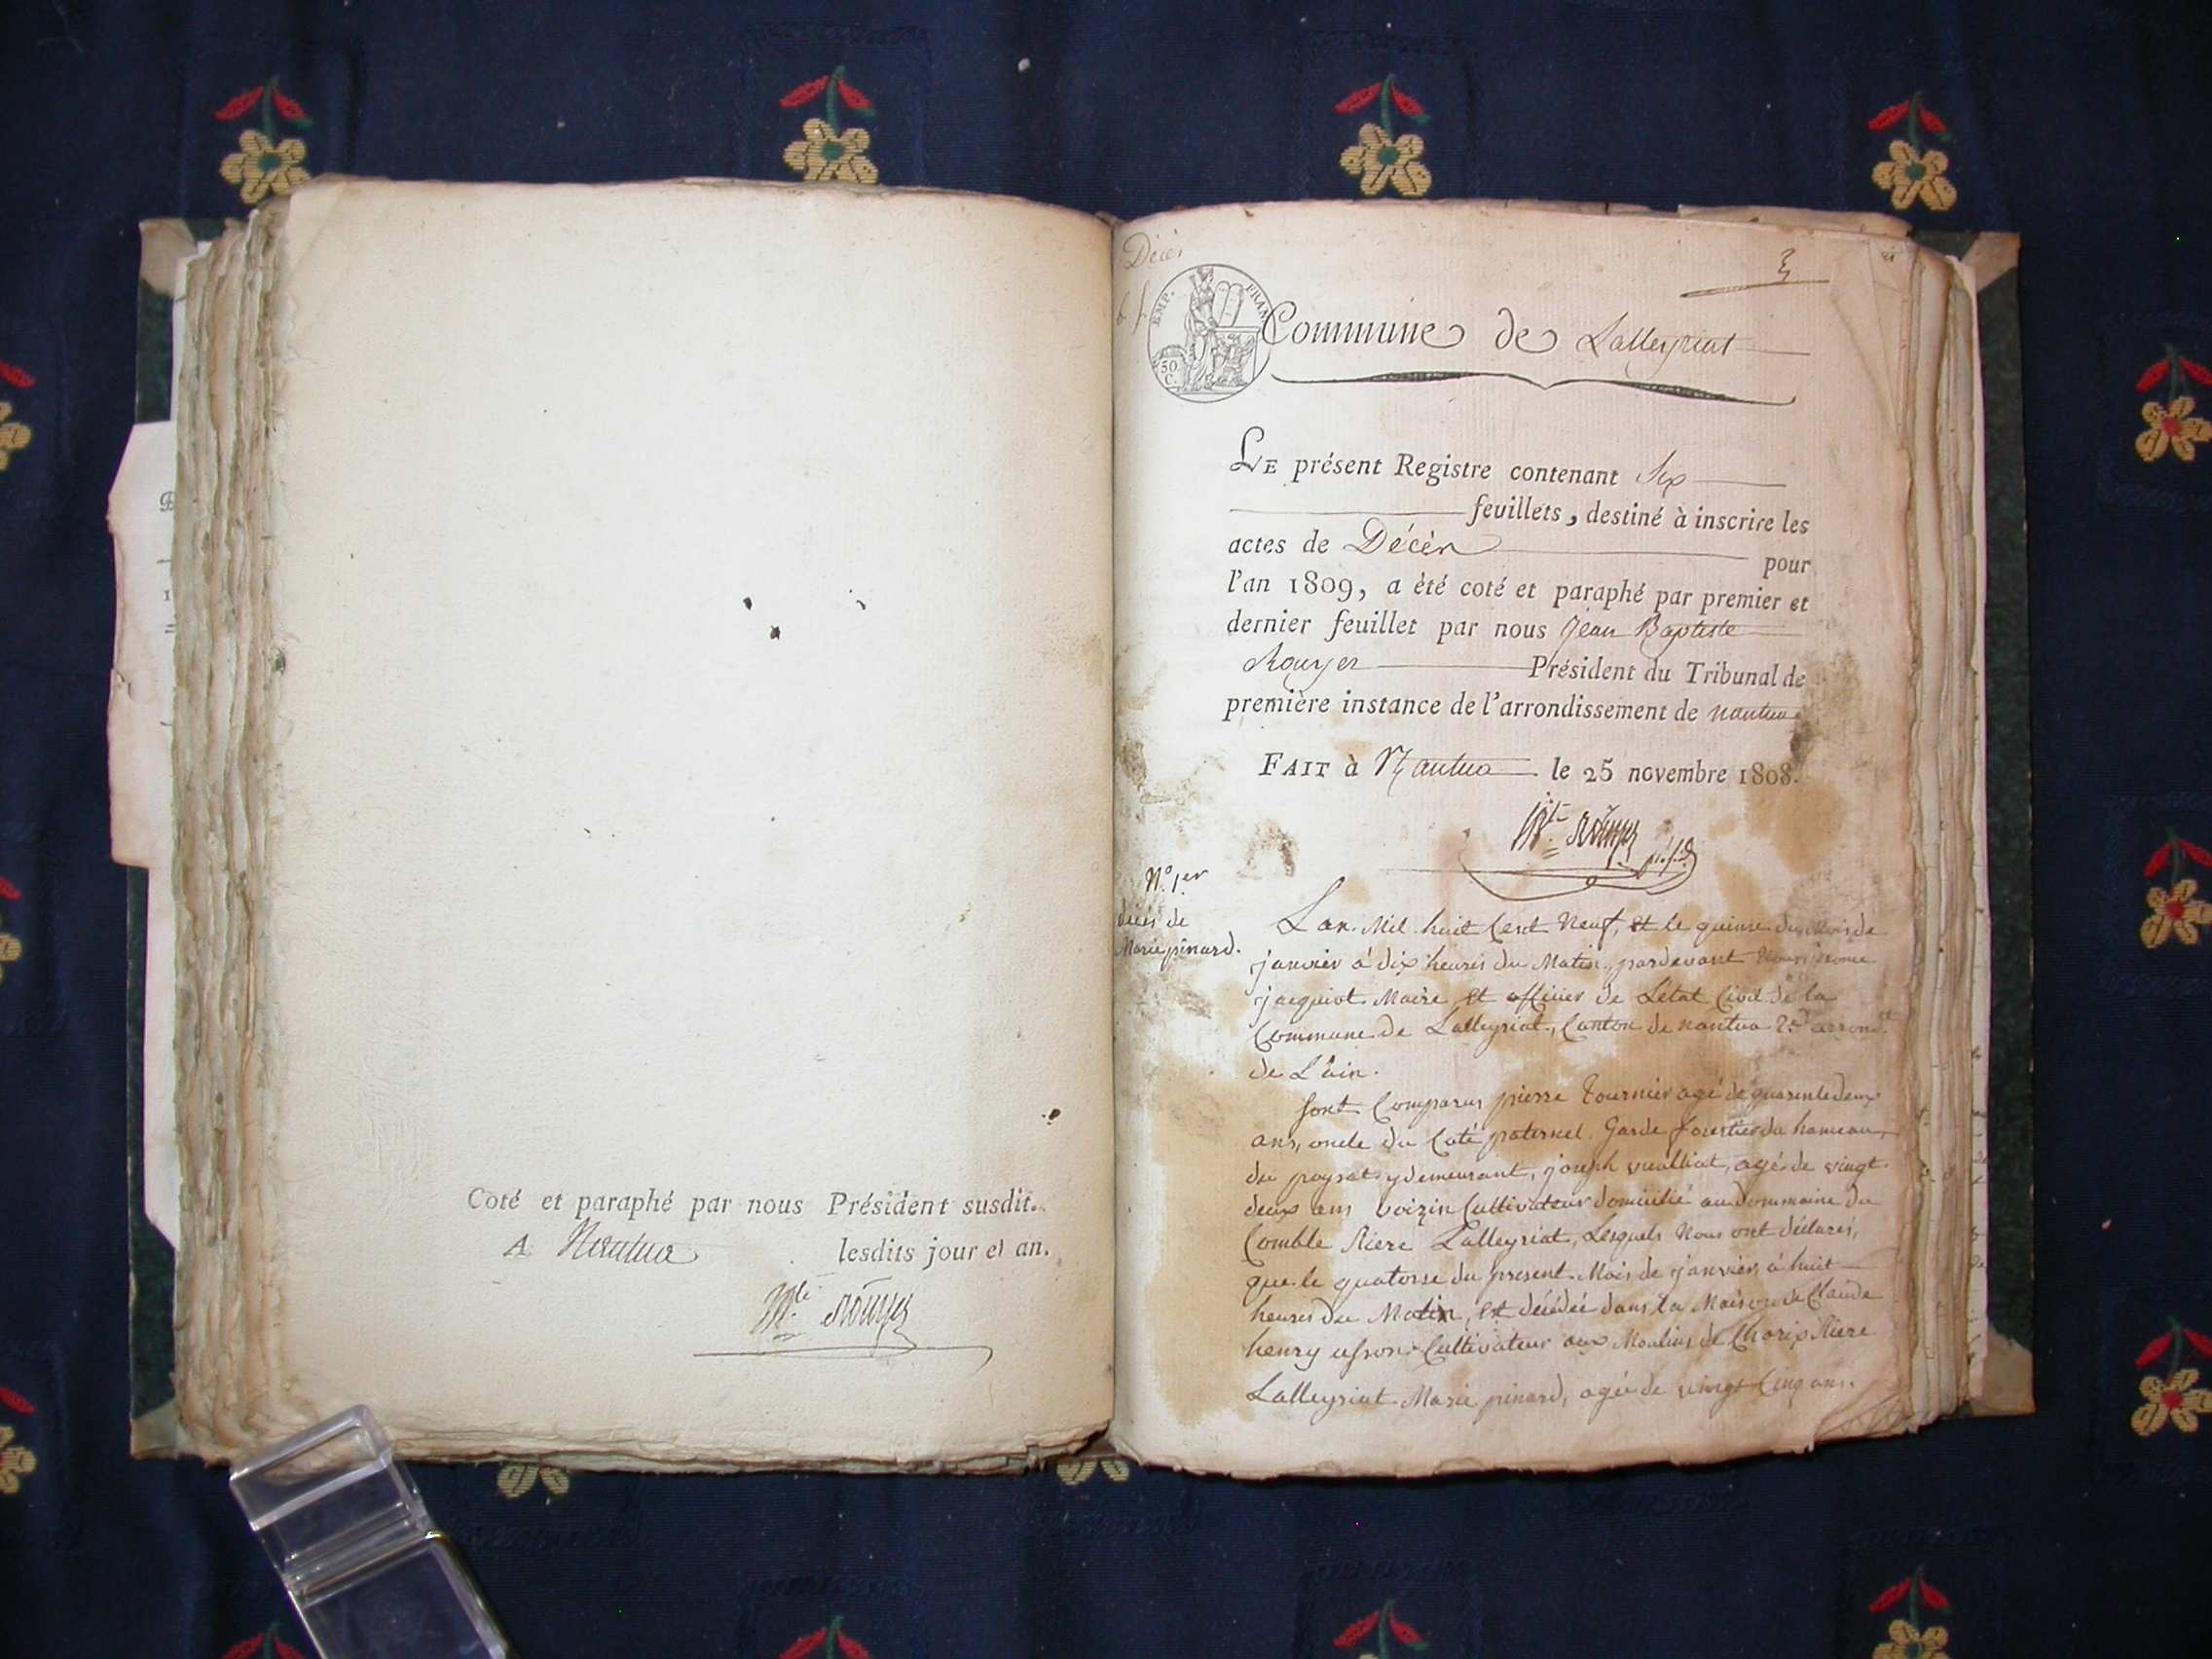 Coté et paraphé par nous Président susdit.
A Nantua lesdits jour et an.
Bte Rouyer
Décès
6 f
3
EMP. FRAN
50 C.
Commune de Lalleyriat
LE présent Registre contenant Six
feuillets, destiné à inscrire les
actes de Décès pour
l'an 1809, a été coté et paraphé par premier et
dernier feuillet par nous Jean Baptiste
Rouyer Président du Tribunal de
première instance de l'arrondissement de nantua
FAIT à Nantua le 25 novembre 1808.
Bte Rouyer
N.º 1er
décès de
Marie pinard.
Lan Mil huit Cent Neuf, et le quinse du Mois de
janvier à dix heures du Matin, pardevant Nous
jacquiot Maire et officier de Létat Civil de la
Commune de Lalleyriat, Canton de nantua
de Lain.
sont Comparus pierre tournier agé de quarente deux
ans, oncle du Coté paternel Garde forestier du hameau
du poyzat y demeurant, joseph vuailliat, agé de vingt
deux ans voizin Cultivateur domicilié au dommaine du
Comble Riere Lalleyriat, Lesquels Nous ont déclarés,
que le quatorse du présent Mois de janvier, à huit
heures du Matin, est décédée dans la Maison de Claude
henry usson Cultivateur aux Moulins de Charix Riere
Lalleyriat Marie pinard, agée de vingt Cinq ans.